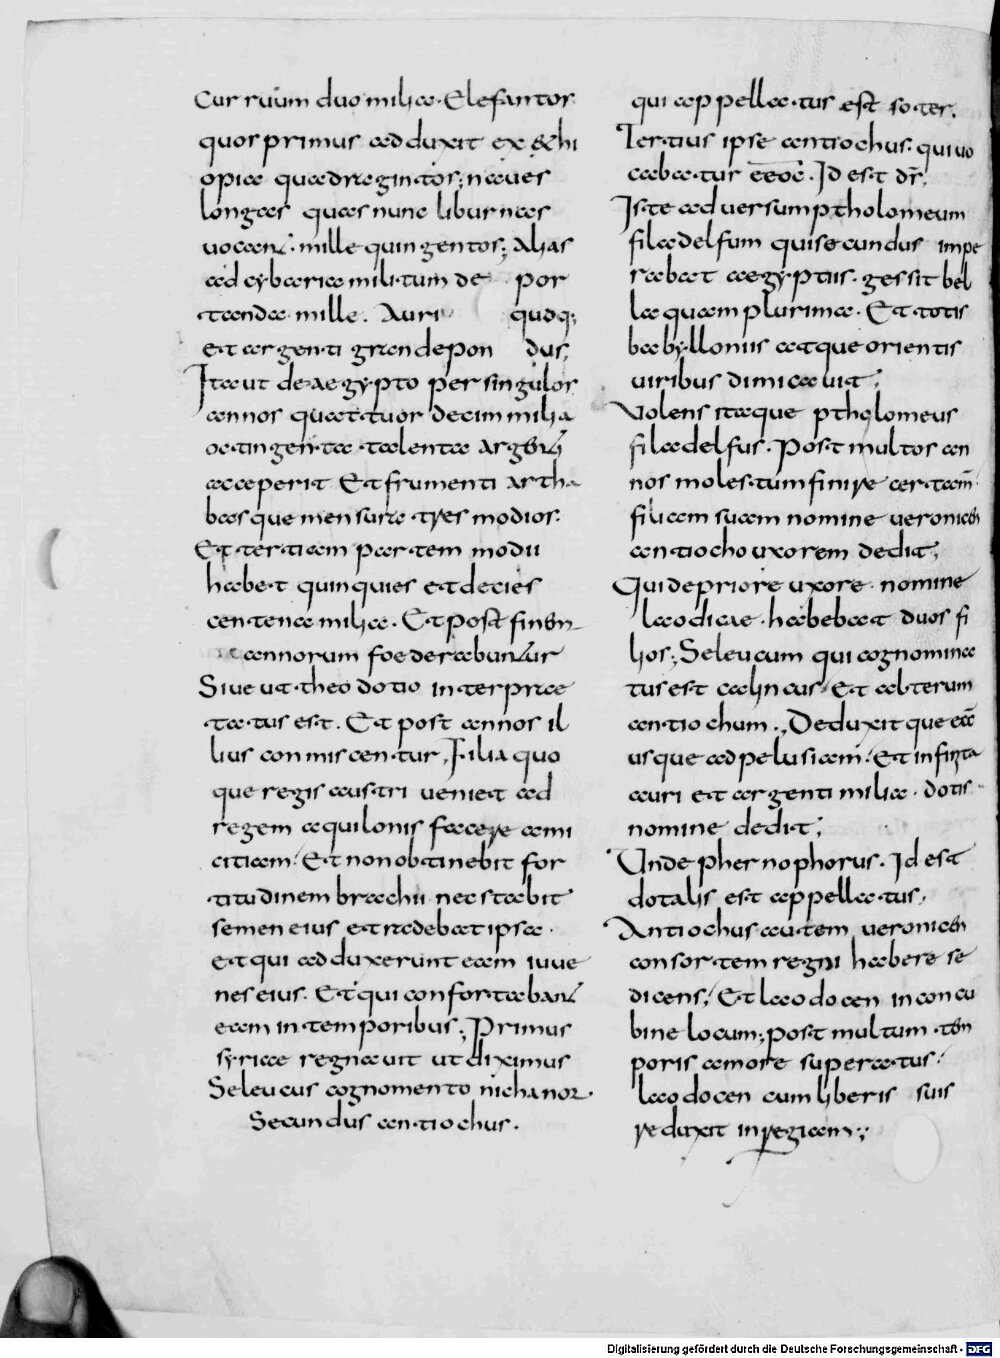 Curruum duo milia. Elefantos
quos primus adduxit ex &hi
opia quadragintos; naues
longas quas nunc liburnas
uocant. mille quingentos; Alias
ad cybaria militum de por
tanda mille. Auri quoq;
et argenti grande pon dus;
Ita ut de aegypto per singulos
annos quattuor decim milia
octingenta talenta argenti
acceperit Et frumenti artha
bas que mensura tres modios.
Et tertiam partem modii
habet quinquies et decies
centena milia. Et post finem
annorum foederabuntur
Siue ut theodotio interpræ
tatus est. Et post annos il
lius conmiscentur, Filia quo
que regis austri ueniet ad
regem aquilonis facere ami
citiam. Et non obtinebit for
titudinem brachii nec stabit
semen eius et tradebat ipsa.
et qui adduxerunt eam iuue
nes eius. Et qui confortabant
eam in temporibus; Primus
syriae regnauit ut diximus
Seleucus cognomento nichanor.
Secundus antiochus.
qui appellatus est soter.
Tertius ipse antiochus. qui uo
cabatur . Id est dr̄;
Iste aduersum ptholomeum
filadelfum qui secundus impe
rabat aegyptiis. gessit bel
la quam plurima. Et totis
babylloniis atque orientis
uiribus dimicauit;
Volens itaque ptholomeus
filadelfus. Post multos an
nos molestum finire certam̄
filiam suam nomine ueronicen
antiocho uxorem dedit;
Qui de priore uxore nomine
laodicae. habebat duos fi
lios; Seleucum qui cognomina
tus est calincus. Et alterum
antiochum. Deduxitque eā
usque ad pelusiam. Et infinita
auri et argenti milia. dotis
nomine dedit;
Unde phernophorus. Id est
dotalis est appellatus;
Antiochus autem ueronicen
consortem regni habere se
dicens; Et laodocen in concu
bine locum; post multum tem
poris amore superatus.
laodocen cum liberis suis
reduxit in regiam;
Digitalisierung gefördert durch die Deutsche Forschungsgemeinschaft - DFG